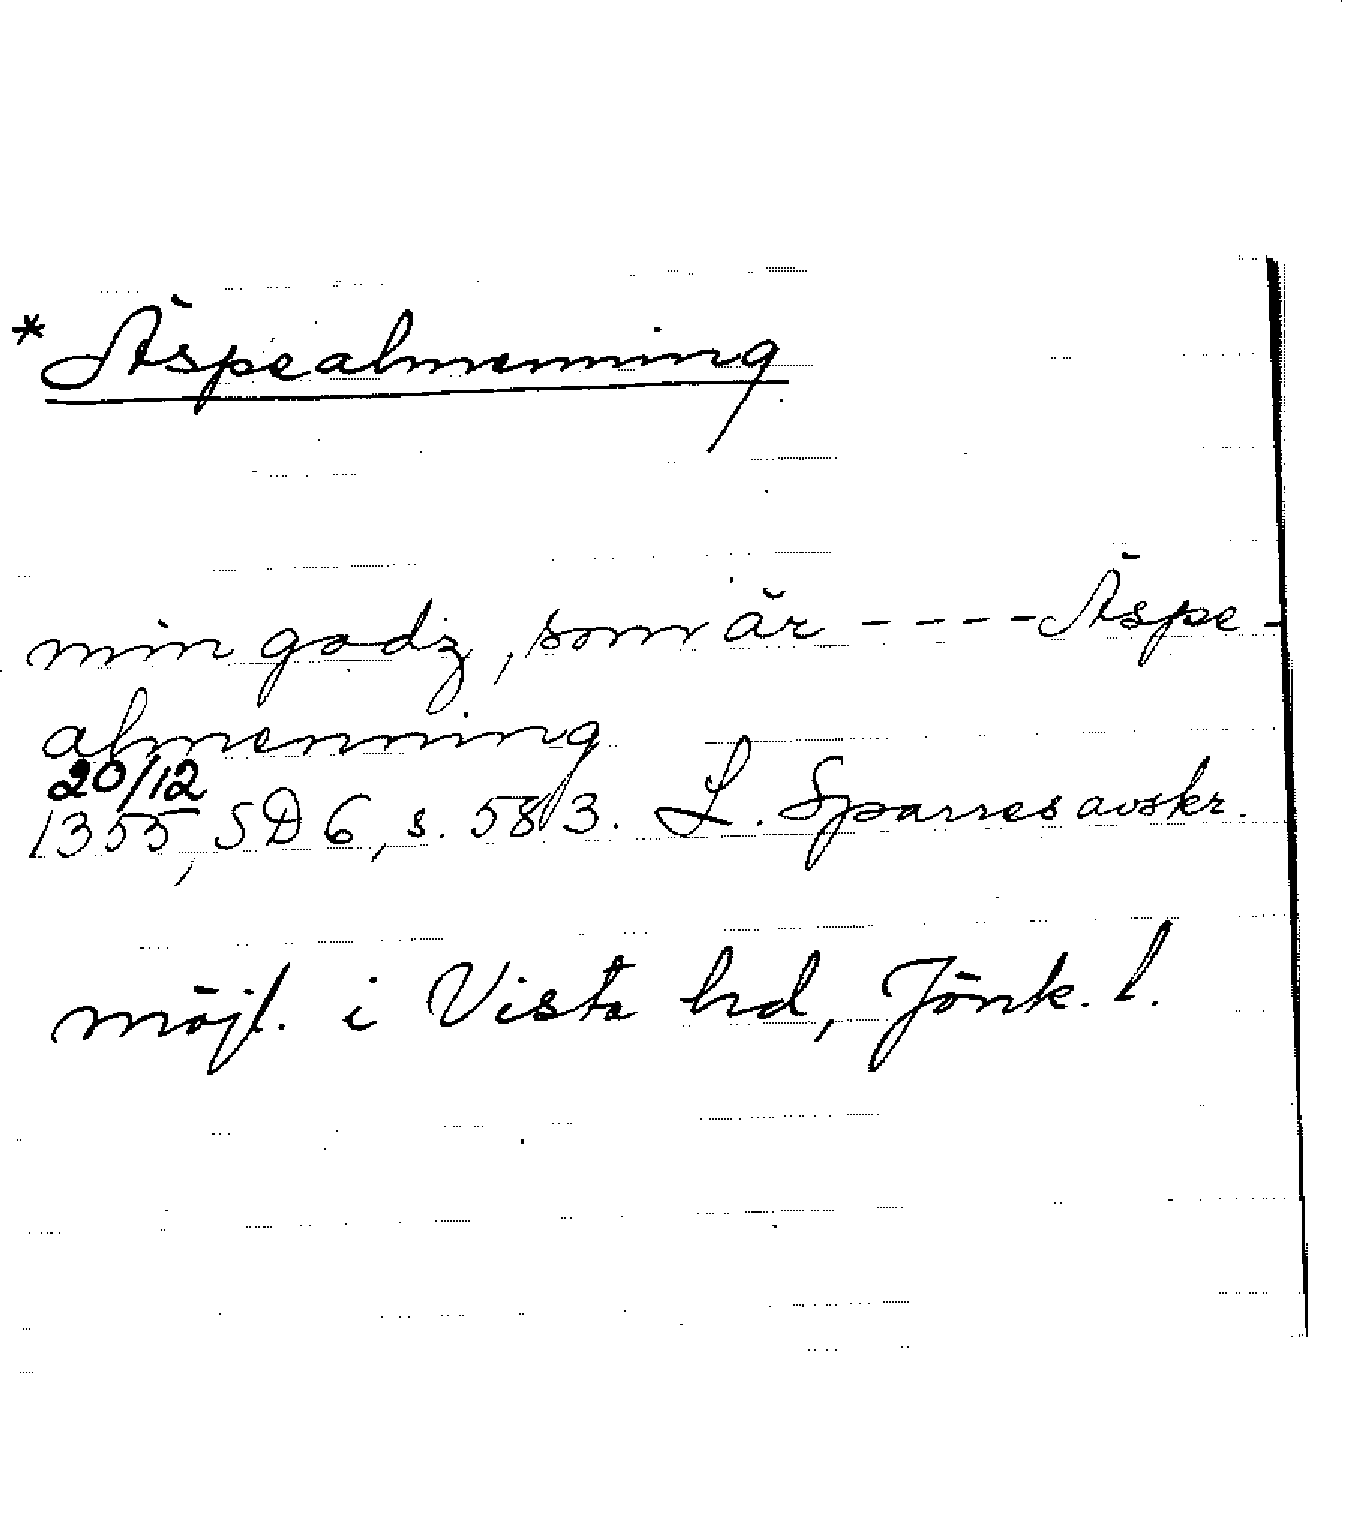 * Äspealmenning
min godz, som är ---- Äspe-
almenning
20/12
1355, SD 6, s. 583. L. Sparres avskr.
möjl. i Vista hd, Jönk. l.